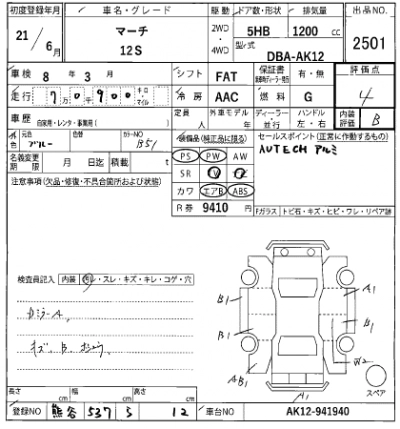 初度登録年月 車名・グレード 駆動 ドア数・形状 排気量 出品NO
21/6月 マーチ 12S 2WD・4WD 5HB 1200cc 2501
型式 DBA-AK12
車検 8年3月 シフト FAT 保証書 有・無 評価点
走行 7万0900 キロ マイル 冷房 AAC 燃料 G 4
車歴 自家用・レンタ・事業用( ) 定員 人 外車モデル 年 ディーラー・並行 ハンドル 左・右 内装評価 B
色 元色 ブルー 色替 カラーNO B51 装備品(純正品に限る) セールスポイント(正常に作動するもの)
名義変更期限 月 日迄 積載 t PS PW AW AUTECH アルミ
注意事項(欠品・修復・不具合箇所および状態) SR
カワ エアB ABS
R券 9410円 Fガラス トビ石・キズ・ヒビ・ワレ・リペア跡
検査員記入 内装 汚レ・スレ・キズ・キレ・コゲ・穴
A1
B1
B1
B1
キズ、B
AB1
W2
A1
スペア
長さ cm 幅 cm 高さ cm
登録NO 熊谷 537 5 12 車台NO AK12-941940